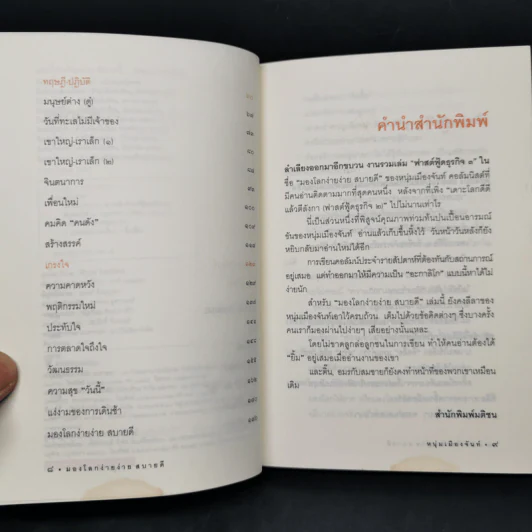 ทฤษฎี-ปฏิบัติ
มนุษย์ต่าง (คู่)
วันที่ทะเลไม่มีเจ้าของ
เขาใหญ่-เราเล็ก (๑)
เขาใหญ่-เราเล็ก (๒)
จินตนาการ
เพื่อนใหม่
คมคิด "คนดัง"
สร้างสรรค์
เกรงใจ
ความคาดหวัง
พฤติกรรมใหม่
ประทับใจ
การตลาดใจถึงใจ
วัฒนธรรม
ความสุข "วันนี้"
แง่งามของการเดินช้า
มองโลกง่ายง่าย สบายดี
๘ • มองโลกง่ายง่าย สบายดี
คำนำสำนักพิมพ์
ลำเลียงออกมาอีกขบวน งานรวมเล่ม "ฟาสต์ฟู้ดธุรกิจ ๓" ใน
ชื่อ "มองโลกง่ายง่าย สบายดี" ของหนุ่มเมืองจันท์ คอลัมนิสต์ที่
มีคนอ่านติดตามมากที่สุดคนหนึ่ง หลังจากที่เพิ่ง "เคาะโลกดีดี
แล้วตีลังกา (ฟาสต์ฟู้ดธุรกิจ ๒)" ไปไม่นานเท่าไร
นี่เป็นส่วนหนึ่งที่พิสูจน์คุณภาพท่วมท้นปนเปื้อนอารมณ์
ขันของหนุ่มเมืองจันท์ อ่านแล้วเก็บขึ้นหิ้งไว้ วันหน้าวันหลังก็ยัง
หยิบกลับมาอ่านใหม่ได้อีก
การเขียนคอลัมน์ประจำรายสัปดาห์ที่ต้องทันกับสถานการณ์
อยู่เสมอ แต่ทำออกมาให้มีความเป็น "อะกาลิโก" แบบนี้หาได้ไม่
ง่ายนัก
สำหรับ "มองโลกง่ายง่าย สบายดี" เล่มนี้ ยังคงลีลาของ
หนุ่มเมืองจันท์เอาไว้ครบถ้วน เต็มไปด้วยข้อคิดต่างๆ ซึ่งบางครั้ง
คนเราก็มองผ่านไปง่ายๆ เสียอย่างนั้นแหละ
โดยไม่ขาดลูกล่อลูกชนในการเขียน ทำให้คนอ่านต้องได้
"ยิ้ม" อยู่เสมอเมื่ออ่านงานของเขา
และตี๋, อมรกับสมชายก็ยังคงทำหน้าที่ของพวกเขาเหมือน
เดิม
สำนักพิมพ์มติชน
หนุ่มเมืองจันท์ • ๙